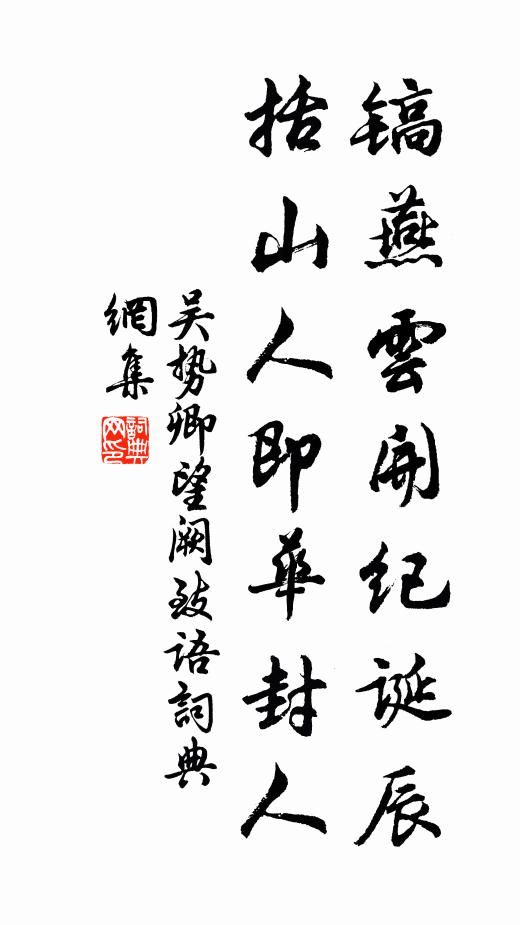 镐燕雲開纪誕辰
括山人即華封人
吴势卿望阙致语詞典
網集
詞典
网印